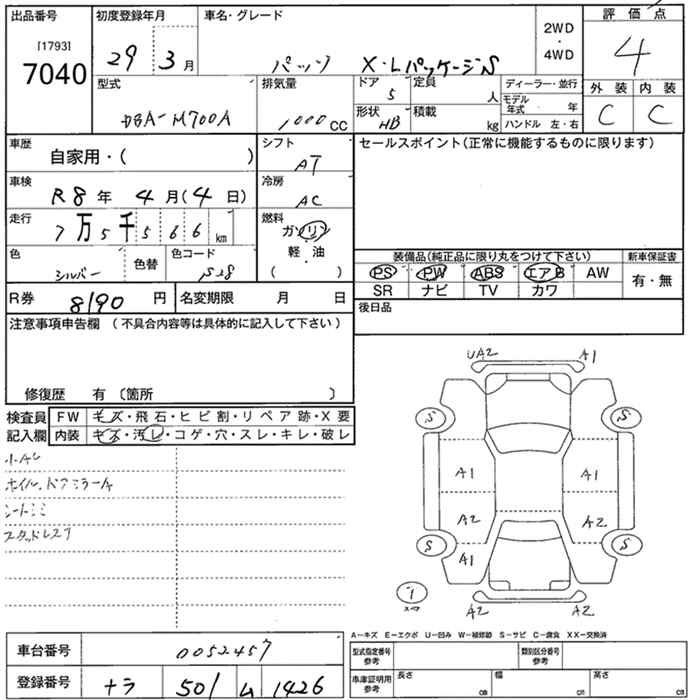 出品番号 初度登録年月 車名・グレード 2WD・4WD 評価点
[1793]
7040 29 3月 パッソ X・LパッケージS 4
型式 排気量 ドア 5 定員 人 ディーラー・並行 外装 内装
DBA-M700A 1000cc 形状 HB 積載 kg モデル年式 年 C C
ハンドル 左・右
車歴 自家用・( ) シフト AT セールスポイント(正常に機能するものに限ります)
車検 R8年 4月(4日) 冷房 AC
走行 7万5千566km 燃料 ガソリン
軽・油
( )
色 シルバー 色替 色コード 1S28
装備品(純正品に限り丸をつけて下さい) 新車保証書
PS PW ABS エアB AW 有・無
SR ナビ TV カワ
R券 8190円 名変期限 月 日 後日品
注意事項申告欄 (不具合内容等は具体的に記入して下さい)
修復歴 有 〔箇所 〕
検査員 FW キズ・飛石・ヒビ割・リペア跡・X要
記入欄 内装 キズ・汚レ・コゲ・穴・スレ・キレ・破レ
ホイル、ドアミラーA
シートシミ
スタッドレス7
UA2 A1
S S
A1 A1
A2 A2
S A1 S
A2 A2
A-キズ E-エクボ U-凹み W-補修跡 S-サビ C-腐食 XX-交換済
車台番号 0052457 型式指定番号 参考 類別区分番号 参考
登録番号 ナラ 501 ム 1426 車庫証明用 参考 長さ cm 幅 cm 高さ cm